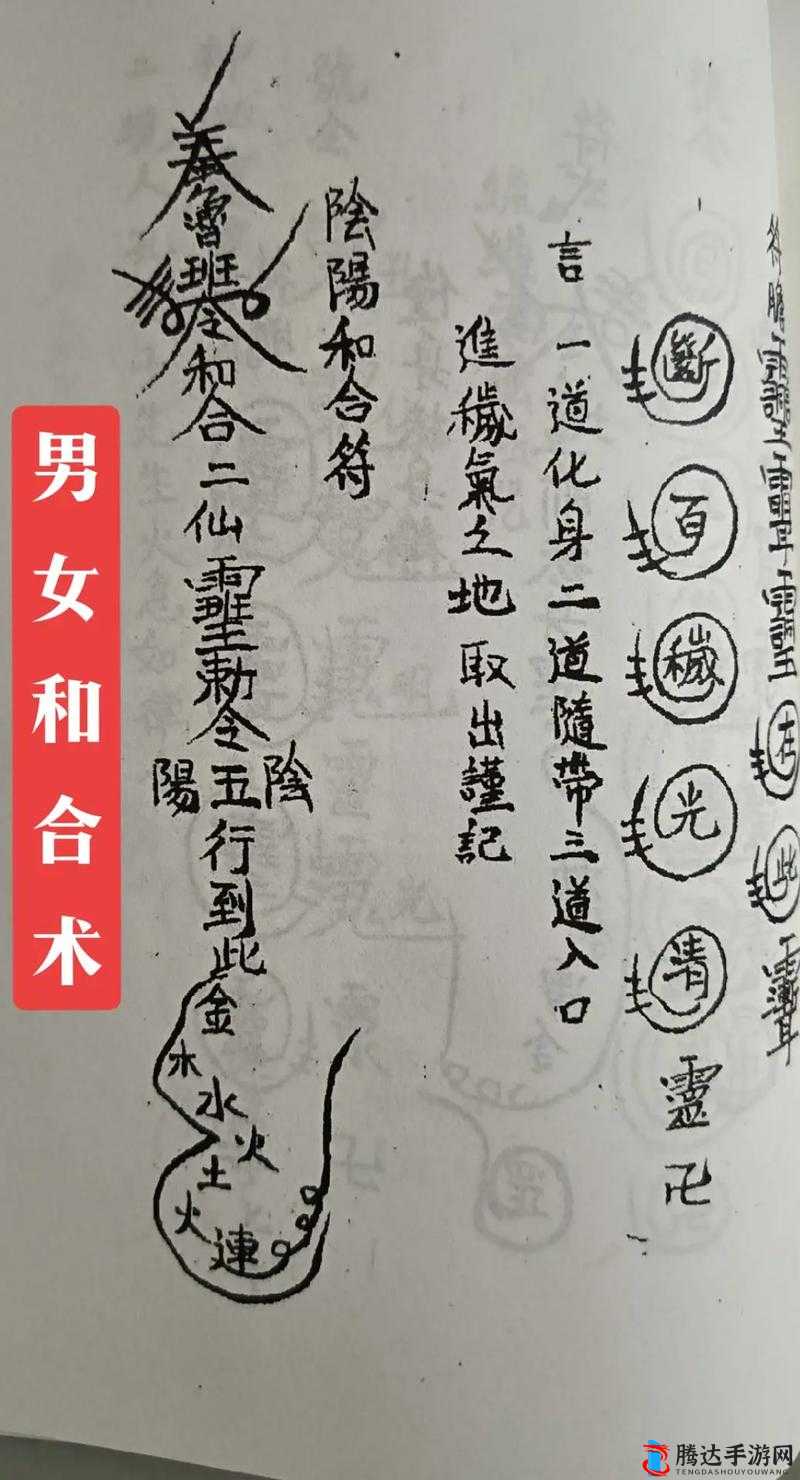 符膽
在此
斷百穢光清靈卍
言一道化身二道隨帶三道入口
進穢氣之地取出謹記
陰陽和合符
魯班令和合二仙
勅令
陰
五行到此
陽
金
水
水
火
土
火
連
男女和合术
腾达手游网
TENGDASHOUYOUWANG